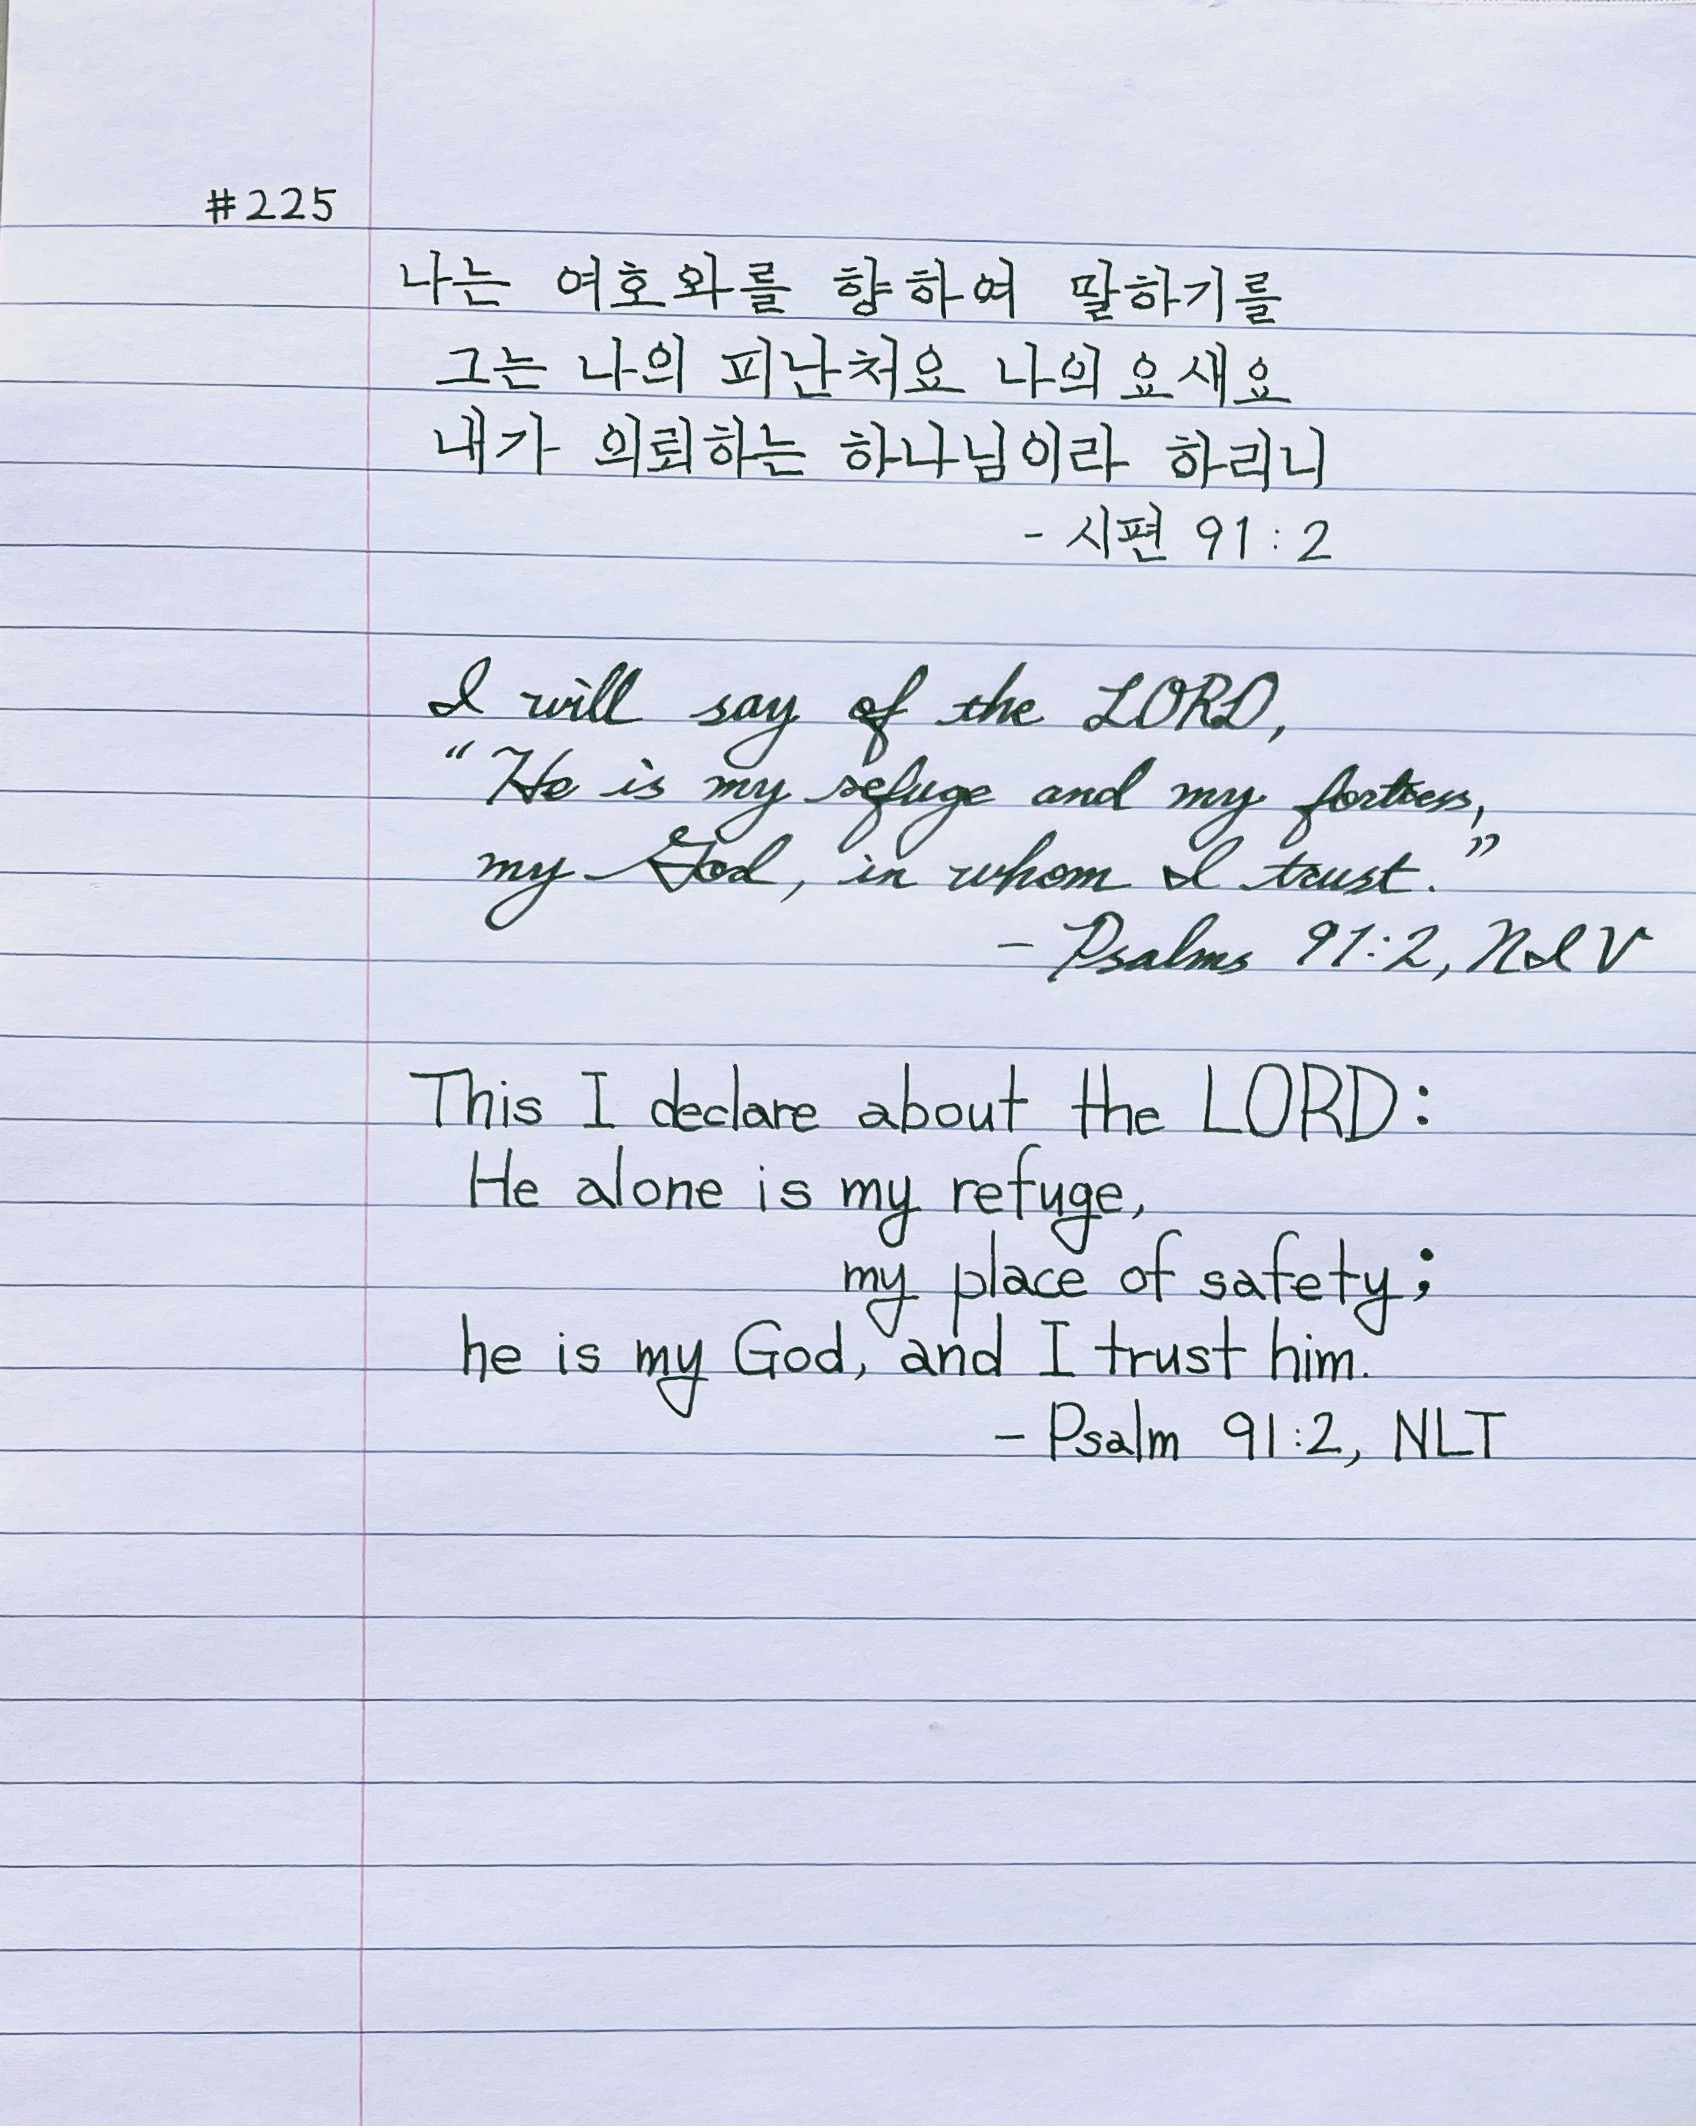 #225
나는 여호와를 향하여 말하기를
그는 나의 피난처요 나의 요새요
내가 의뢰하는 하나님이라 하리니
- 시편 91:2
I will say of the LORD,
"He is my refuge and my fortress,
my God, in whom I trust."
- Psalms 91:2, NIV
This I declare about the LORD:
He alone is my refuge,
my place of safety;
he is my God, and I trust him.
- Psalm 91:2, NLT